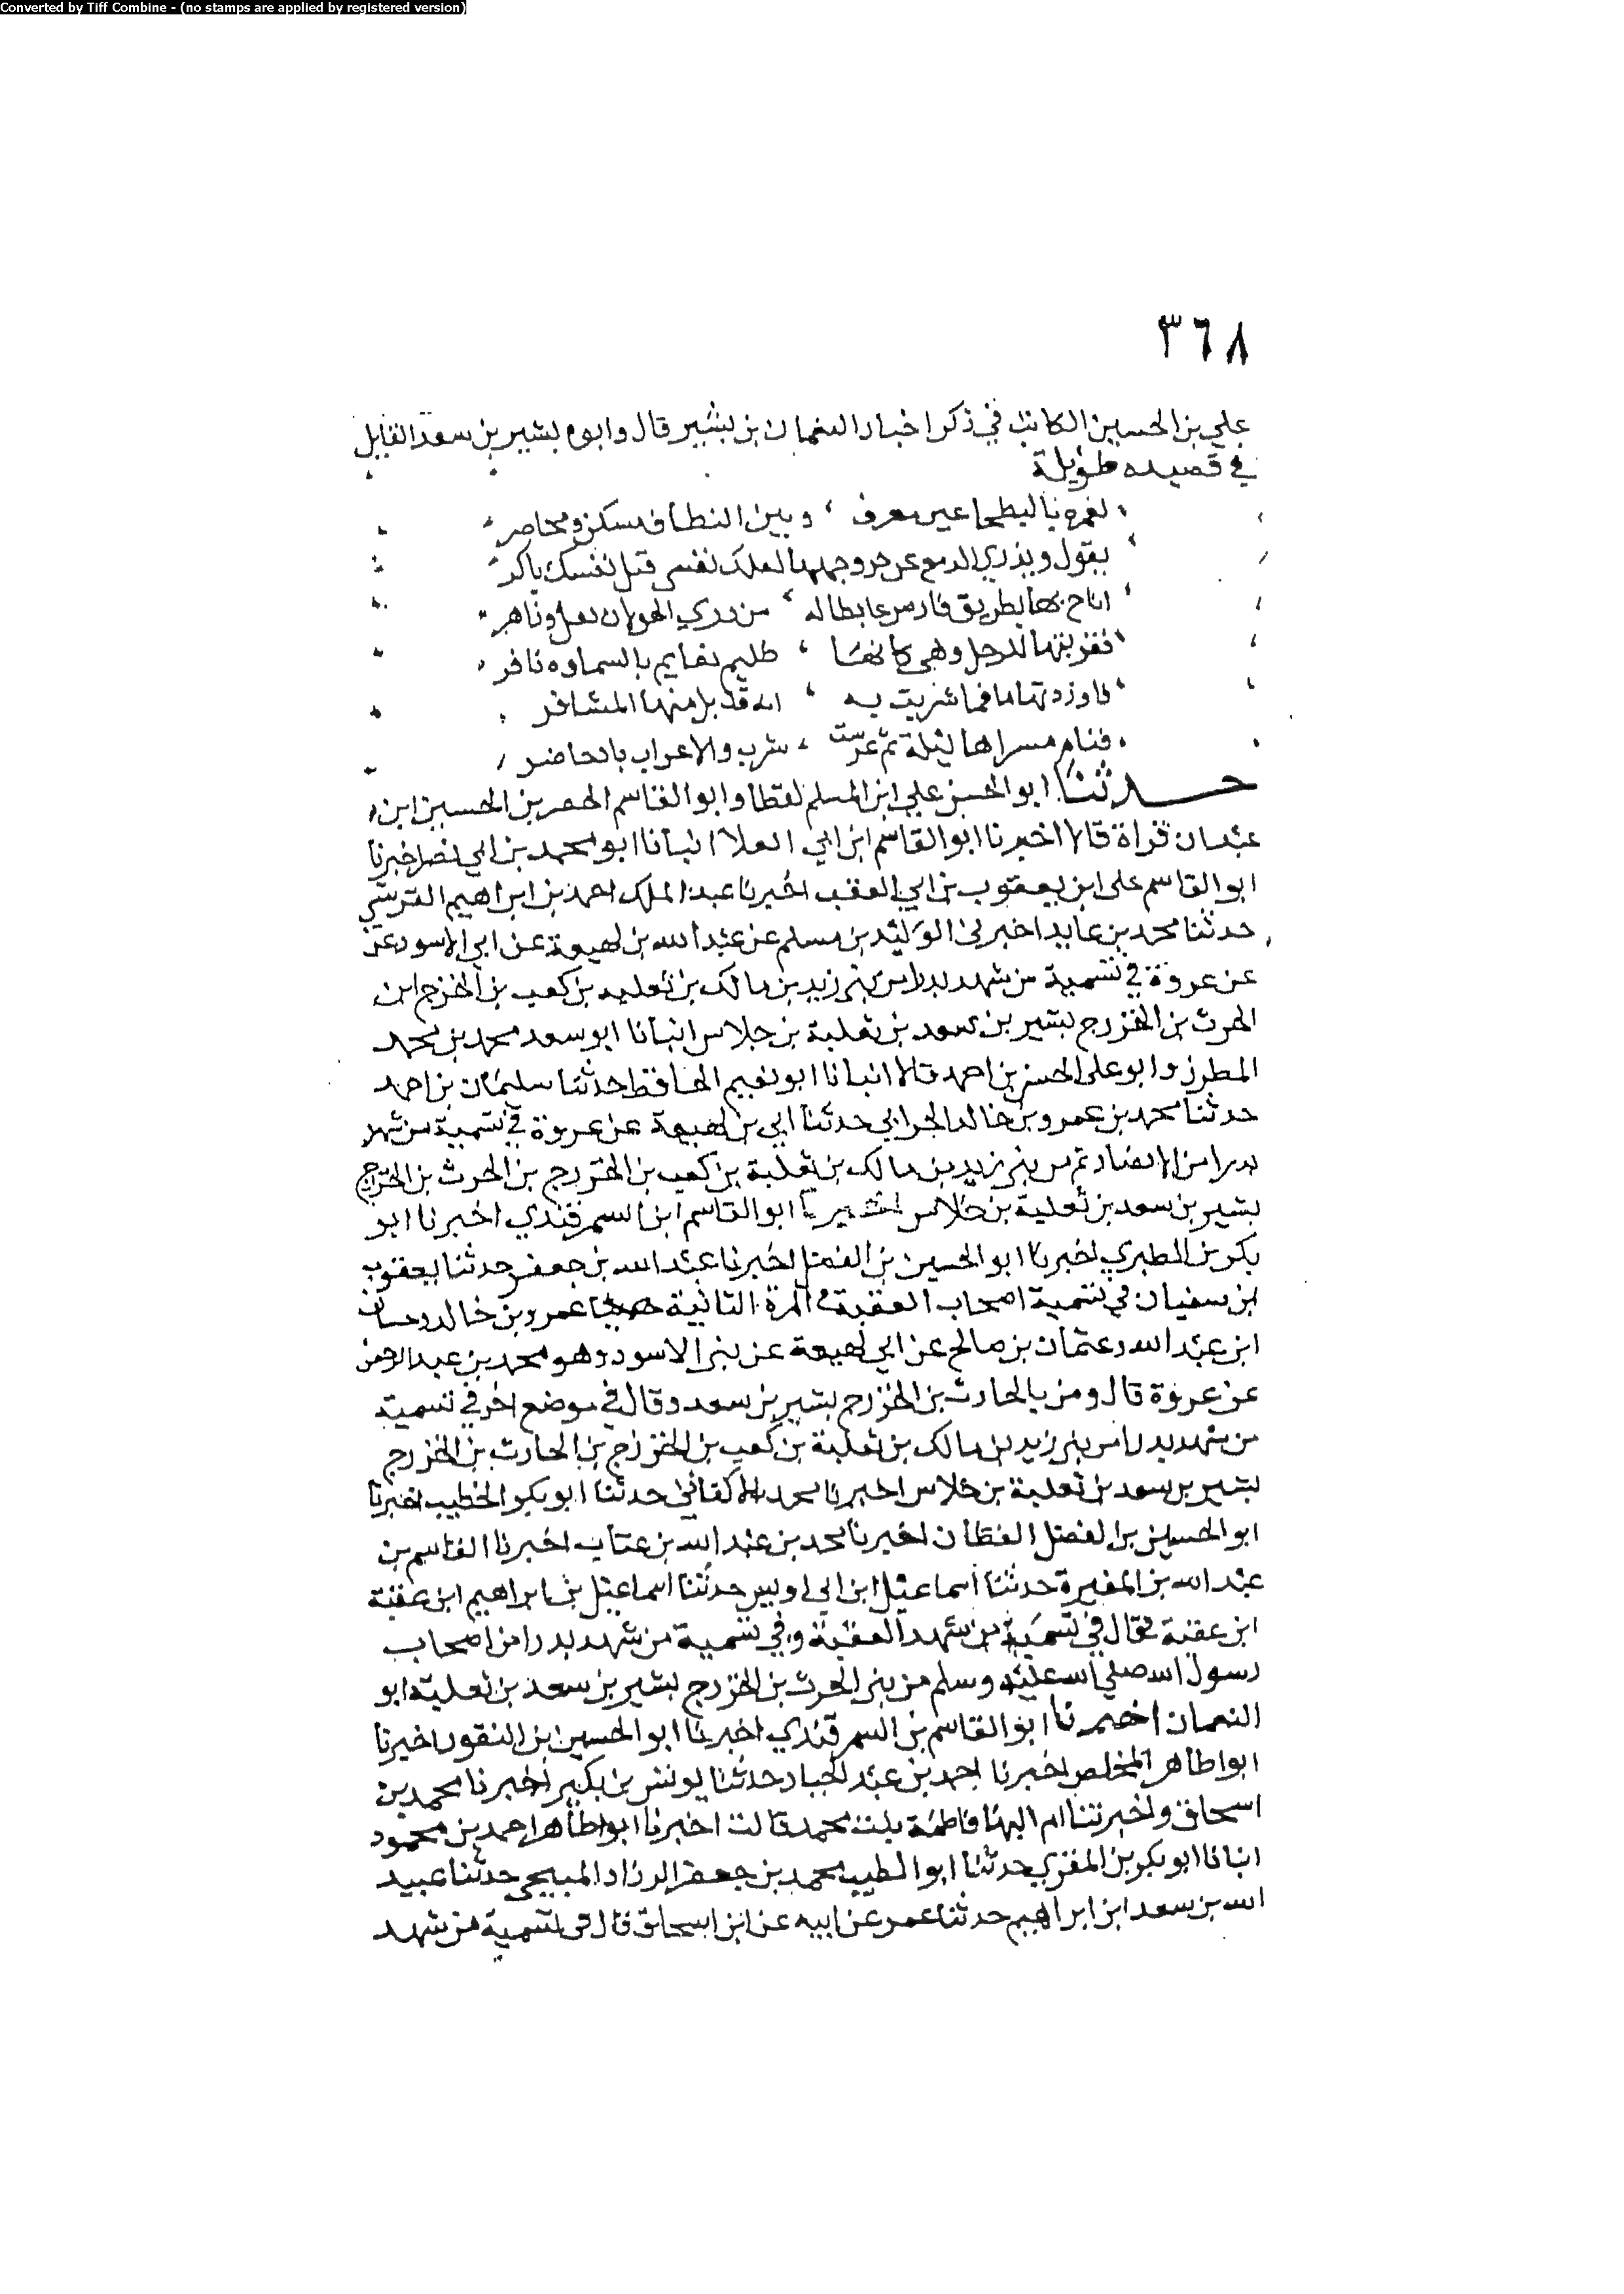 Converted by Tiff Combine - (no stamps are applied by registered version)
٣٦٨
علي بن الحسين الكاتب في ذكر اخبار النعمان بن بشير قال وابوه بشير بن سعد القايل
في قصيده طويلة
لعمرة بالبطحا غير معرف وبين النطاف مسكن ومحاضر
يقول ويذري الدمع عن حر وجهه لعلك نفسي قبل نفسك باكر
اناح بها بطريق فارس غابطا له من ذري الجولان بقل وزاهر
فقربتها للرحل وهي كانها ظليم نعايم بالسماوه نافر
فاوردتها ما فما شربت به انه قد بل منها المشافر
فنام مسراها ليلة ثم عرست شرب والاعراب باد حاضر
حدثنا ابو الحسن علي ابن المسلم لفظا وابو القاسم الحصر بن الحسين ابن
عبدان قراة قالا اخبرنا ابو القاسم ابن ابي العلا انبانا ابو محمد بن ابي نصر اخبرنا
ابو القاسم على ابن يعقوب بن ابي العقب اخبرنا عبد الملك احمد بن ابراهيم القرشي
حدثنا محمد بن عايد اخبرني الوليد بن مسلم عن عبد الله بن لهيعة عن ابي الاسود عن
عن عروة في تسمية من شهد بدرا من بني زيد بن مالك بن ثعلبه بن كعب بن الخزرج ابن
الحرث بن الخزرج بشير بن سعد بن ثعلبة بن جلاس انبانا ابو سعد محمد بن محمد
المطرز وابو على الحسن بن احمد قالا انبانا ابو نعيم الحافظ حدثنا سليمان بن احمد
حدثنا محمد بن عمرو بن خالد الحراني حدثنا ابي بن لهيعة عن عروة في تسمية من شهد
بدرا من الانصار ثم من بني زيد بن مالك بن ثعلبة بن كعب بن الخزرج بن الحرث بن الخزرج
بشير بن سعد بن ثعلبة بن خلاس اخبرنا ابو القاسم ابن السمرقندي اخبرنا ابو
بكر بن الطبري اخبرنا ابو الحسين بن الفضل اخبرنا عبد الله بن جعفر حدثنا يعقوب
ابن سفيان في تسمية اصحاب العقبة في المرة الثانية عمرو بن خالد وحسان
ابن عبد الله وعثمان بن صالح عن ابي لهيعة عن بني الاسود وهو محمد بن عبد الرحمن
عن عروة قال ومن بالحارث بن الخزرج بشير بن سعد وقال في موضع اخر في تسمية
من شهد بدرا من بني زيد بن مالك بن ثعلبة بن كعب بن الخزرج بن الحارث بن الخزرج
بشير بن سعد بن ثعلبة بن خلاس اخبرنا محمد الاكفاني حدثنا ابو بكر الخطيب اخبرنا
ابو الحسين بن الفضل القطان اخبرنا محمد بن عبد الله بن عتاب اخبرنا القاسم بن
عبد الله بن المغيرة حدثنا اسماعيل ابن ابي اويس حدثنا اسماعيل بن ابراهيم ابن عقبة
ابن عقبة فقال في تسمية من شهد العقبة وفي تسمية من شهد بدرا من اصحاب
رسول الله صلي الله عليه وسلم من بني الحرث بن الخزرج بشير بن سعد بن ثعلبة ابو
النعمان اخبرنا ابو القاسم بن السمرقندي اخبرنا ابو الحسين بن النقور اخبرنا
ابو اطاهر المخلص اخبرنا احمد بن عبد الجبار حدثنا يونس بن بكير اخبرنا محمد بن
اسحاق واخبرتنا ام البها فاطمة بنت محمد قالت اخبرنا ابو اطاهر احمد بن محمود
انبانا ابو بكر بن المقري حدثنا ابو الطيب محمد بن جعفر الرزاد المبيحي حدثنا عبيد
الله بن سعد ابن ابراهيم حدثنا عمر عن ابيه عن ابن اسحاق قال في تسمية من شهد